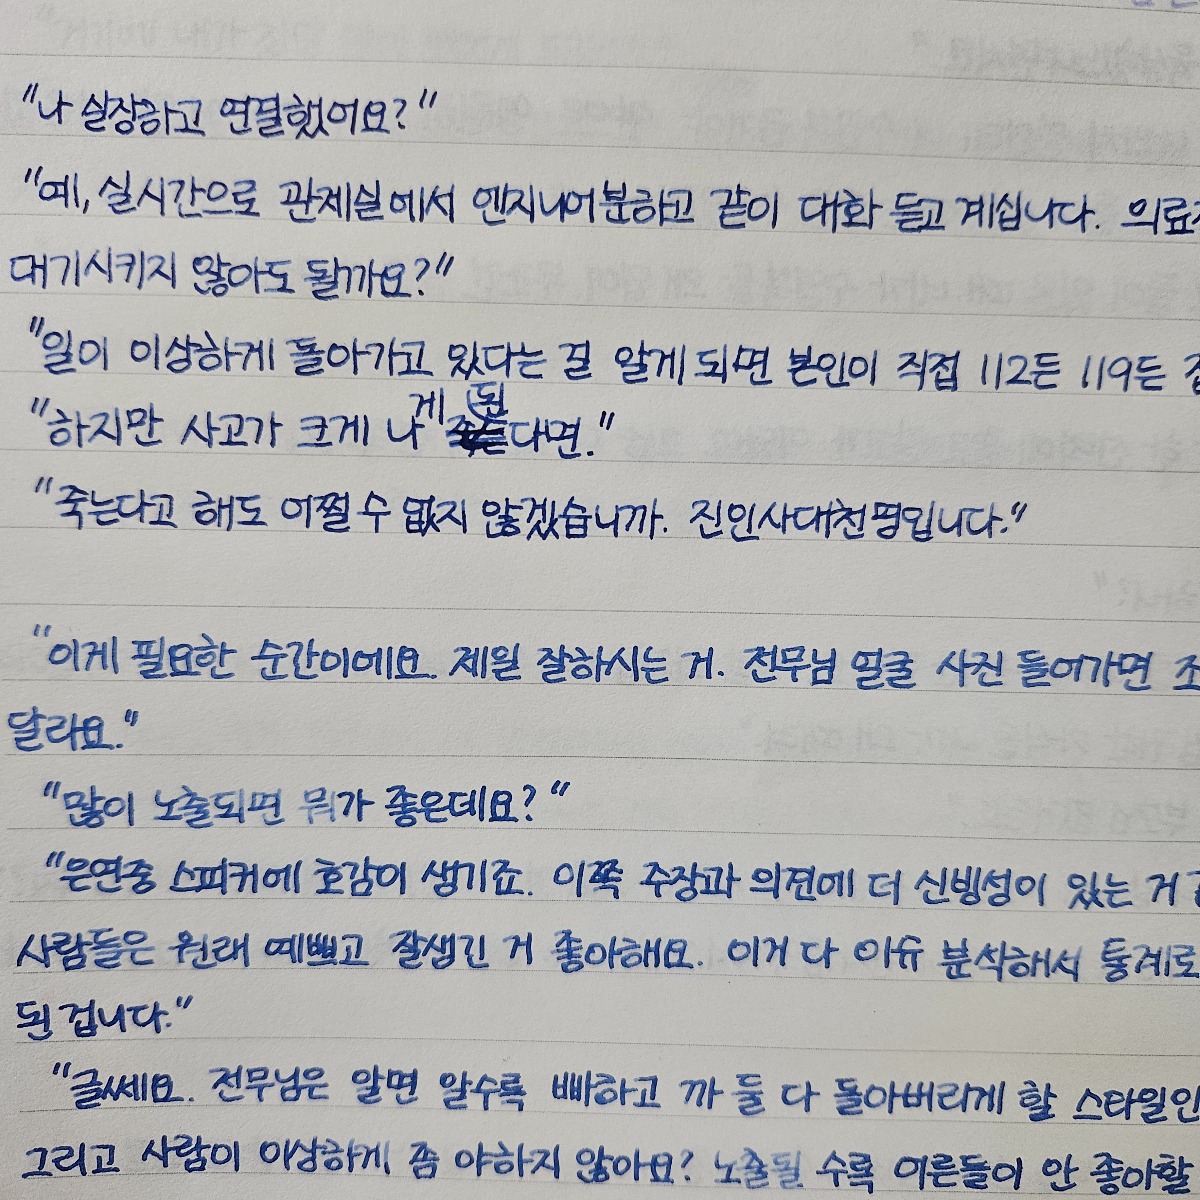 "나 실장하고 연결했어요?"
"예, 실시간으로 관제실에서 엔지니어분하고 같이 대화 듣고 계십니다. 의료
대기시키지 않아도 될까요?"
"일이 이상하게 돌아가고 있다는 걸 알게 되면 본인이 직접 112든 119든
"하지만 사고가 크게 나게 된다면."
"죽는다고 해도 어쩔 수 없지 않겠습니까. 진인사대천명입니다."
"이게 필요한 순간이에요. 제일 잘하시는 거. 전무님 얼굴 사진 들어가면
달라요."
"많이 노출되면 뭐가 좋은데요?"
"은연중 스피커에 호감이 생기죠. 이쪽 주장과 의견에 더 신빙성이 있는 거
사람들은 원래 예쁘고 잘생긴 거 좋아해요. 이거 다 이슈 분석해서 통계로
된 겁니다."
"글쎄요. 전무님은 알면 알수록 빠하고 까 둘 다 돌아버리게 할 스타일인
그리고 사람이 이상하게 좀 야하지 않아요? 노출될 수록 어른들이 안 좋아할